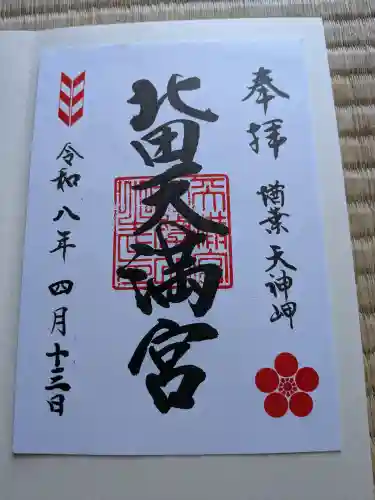 奉拝
天神岬
北田天満宮
令和八年四月十三日